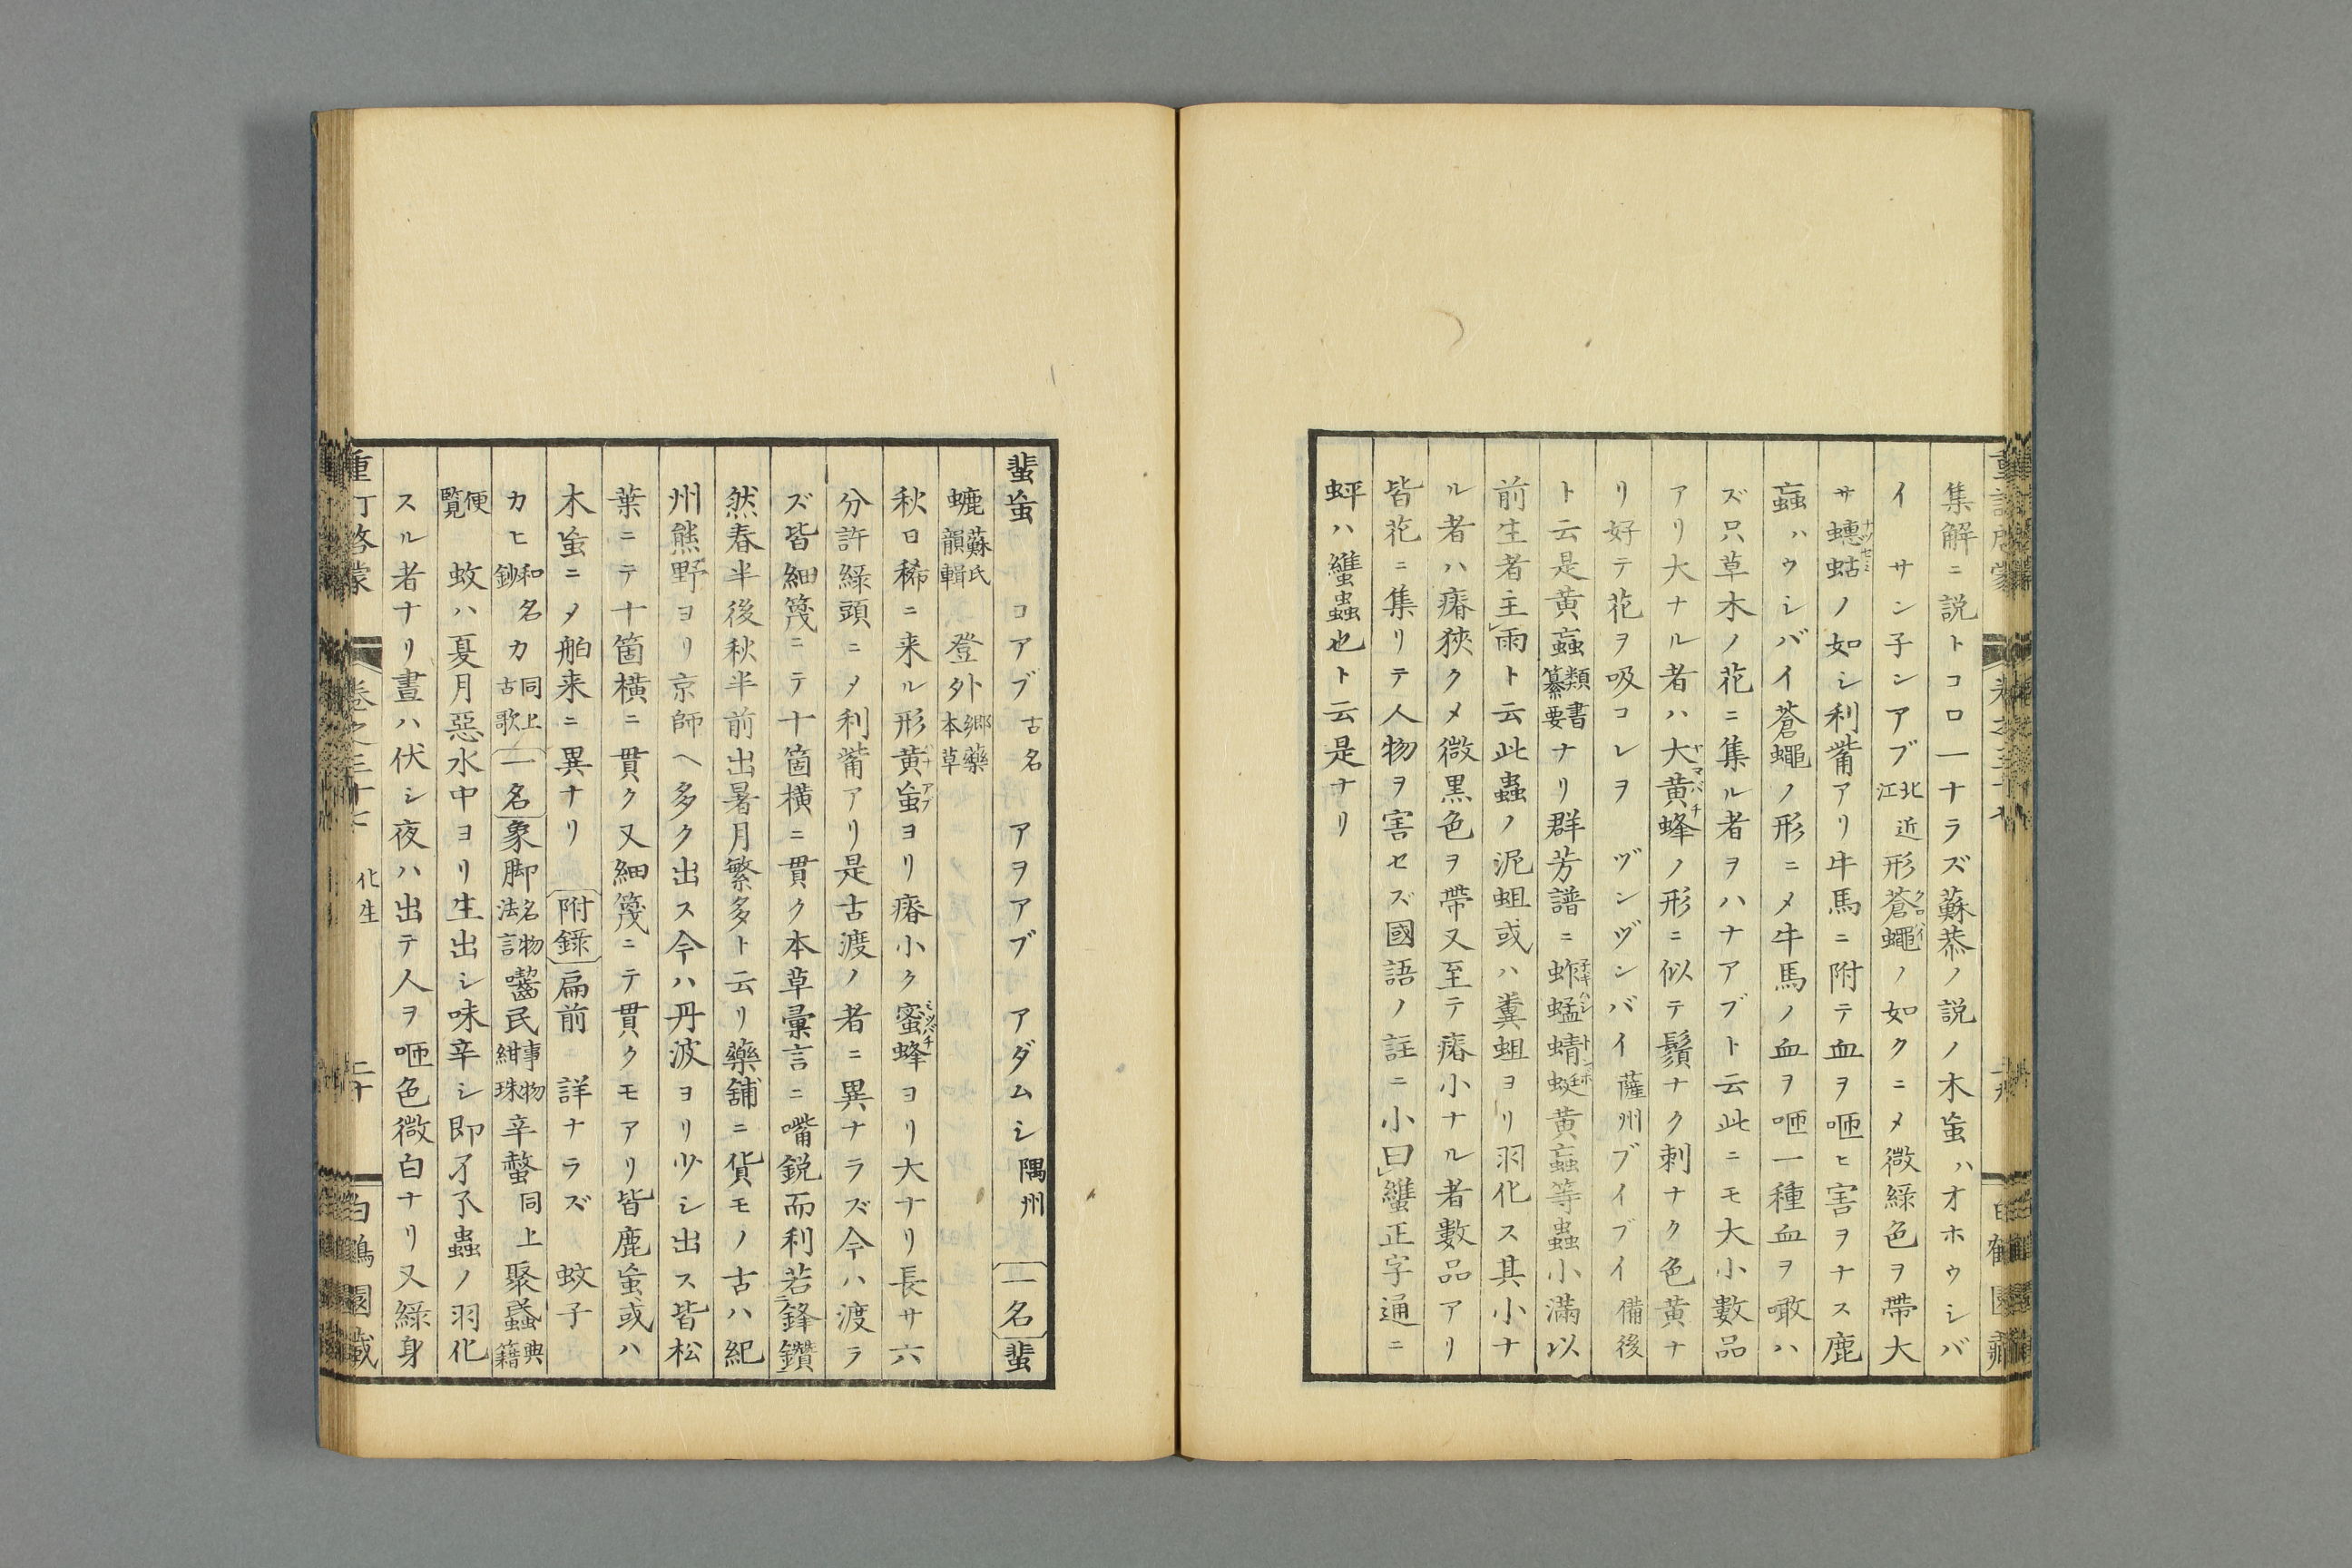 集解ニ説トコロ一ナラズ蘇恭ノ説ノ木䖟ハオホウシバ
イ サン子ンアブ江北近形蒼蠅クロバイノ如クニメ微綠色ヲ帶大
サ蟪蛄ナツセミノ如シ利觜アリ牛馬ニ附テ血ヲ咂ヒ害ヲナス鹿
蝱ハウシバイ蒼蠅ノ形ニメ牛馬ノ血ヲ咂一種血ヲ噉ハ
ズ只草木ノ花ニ集ル者ヲハナアブト云此ニモ大小數品
アリ大ナル者ハ大黄蜂ヤマバチノ形ニ似テ鬚ナク刺ナク色黄ナ
リ好テ花ヲ吸コレヲ ヅンヅンバイ薩州ブイブイ備後
ト云是黄蝱類書纂要ナリ群芳譜ニ蚱蜢蜻蜓トンボ黄蝱等蟲小滿以
前生者主雨ト云此蟲ノ泥蛆或ハ糞蛆ヨリ羽化ス其小ナ
ル者ハ瘠狹クメ微黒色ヲ帶又至テ瘠小ナル者數品アリ
皆花ニ集リテ人物ヲ害セズ國語ノ註ニ小曰蠽正字通ニ
蚲ハ蠽蟲也ト云是ナリ
蜚䖟 コアブ古名 アヲアブ アダムシ隅州 一名蜚
螰蘇氏韻輯 登外郷藥本草
秋日稀ニ来ル形黄䖟ハナアブヨリ瘠小ク蜜蜂ミツバチヨリ大ナリ長サ六
分許綠頭ニメ利觜アリ是古渡ノ者ニ異ナラズ今ハ渡ラ
ズ皆細篾ニテ十箇横ニ貫ク本草彙言ニ嘴鋭而利若鋒鑽
然春半後秋半前出暑月繁多ト云リ藥舖ニ貨モノ古ハ紀
州熊野ヨリ京師ヘ多ク出ス今ハ丹波ヨリ少シ出ス皆松
葉ニテ十箇横ニ貫ク又細篾ニテ貫クモアリ皆鹿䖟或ハ
木䖟ニメ舶来ニ異ナリ 附錄扁前ニ詳ナラズ 蚊子
カヒ和名鈔カ同上古歌 一名象脚名物法言嚙民事物紺珠辛螫同上聚蟁典籍
便覧 蚊ハ夏月惡水中ヨリ生出シ味辛シ即孑孓蟲ノ羽化
スル者ナリ晝ハ伏シ夜ハ出テ人ヲ咂色微白ナリ又綠身
重訂啓蒙 卷之三十七 化生 二十 白鶴園藏